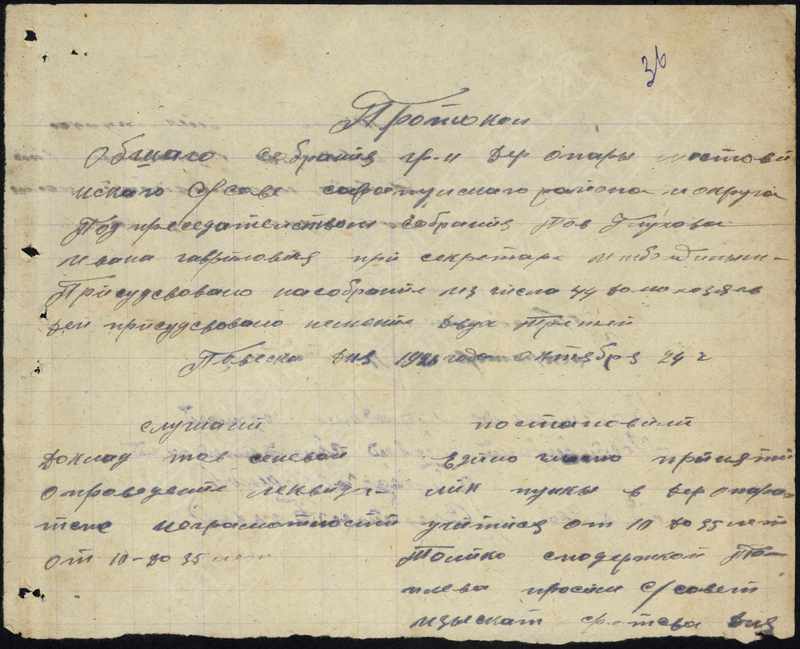 36
Протокол
Общаго собрания гр-н дер опары мостови
нскаго С/сове сарапулскаго района и округа
Под преседателством собрания тов Глухова
Ивана гаврилович при секретаре
Присудсвовало насобрание из числа 44 домохозяев
дей присудсвовало неменее двух третей
Повеска дня 1926 года октября 24 г
слушали
доклад тов
о проведение ликвид-
неграмотности
от 10-до 35 лет
постановили
единогласно принять
лик пункы в дер опара-
учится от 10 до 35 лет
Толко сподержкой топ-
лева просит С/совет
изыскат сретсва для